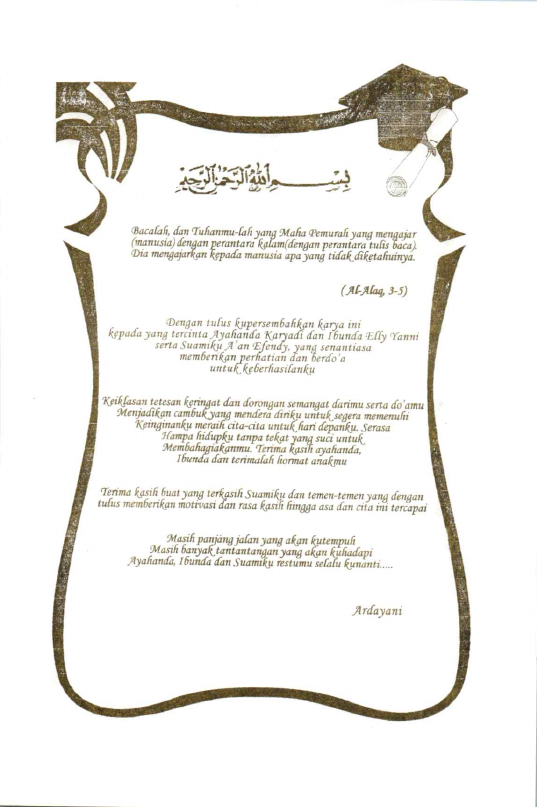 بسم الله الرحمن الرحيم
Bacalah, dan Tuhanmu-lah yang Maha Pemurah yang mengajar
(manusia) dengan perantara kalam(dengan perantara tulis baca).
Dia mengajarkan kepada manusia apa yang tidak diketahuinya.
(Al-Alaq, 3-5)
Dengan tulus kupersembahkan karya ini
kepada yang tercinta Ayahanda Karyadi dan Ibunda Elly Yanni
serta Suamiku A'an Efendy, yang senantiasa
memberikan perhatian dan berdo'a
untuk keberhasilanku
Keiklasan tetesan keringat dan dorongan semangat darimu serta do'amu
Menjadikan cambuk yang mendera diriku untuk segera memenuhi
Keinginanku meraih cita-cita untuk hari depanku. Serasa
Hampa hidupku tanpa tekat yang suci untuk
Membahagiakanmu. Terima kasih ayahanda,
Ibunda dan terimalah hormat anakmu
Terima kasih buat yang terkasih Suamiku dan temen-temen yang dengan
tulus memberikan motivasi dan rasa kasih hingga asa dan cita ini tercapai
Masih panjang jalan yang akan kutempuh
Masih banyak tantantangan yang akan kuhadapi
Ayahanda, Ibunda dan Suamiku restumu selalu kunanti.....
Ardayani